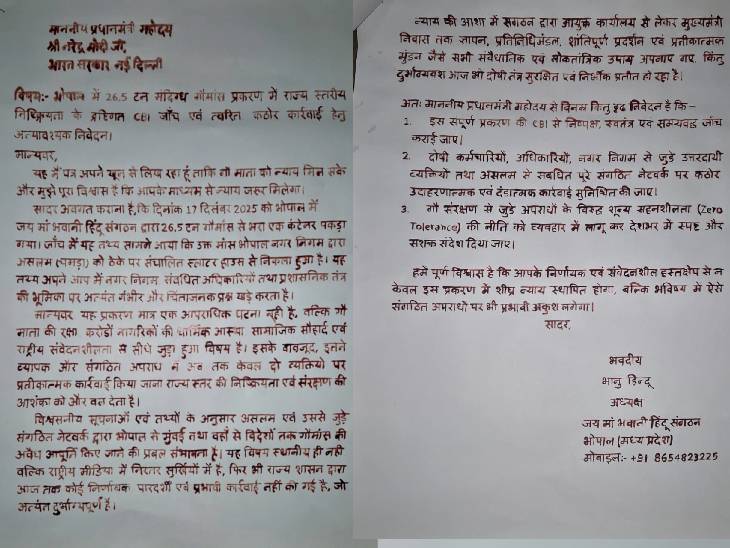 माननीय प्रधानमंत्री महोदय
श्री नरेन्द्र मोदी जी,
भारत सरकार नई दिल्ली
विषय:- भोपाल में 26.5 टन संदिग्ध गौमांस प्रकरण में राज्य स्तरीय
निष्क्रियता के दृष्टिगत CBI जाँच एवं त्वरित कठोर कार्रवाई हेतु
अत्यावश्यक निवेदन।
मान्यवर,
यह में पत्र अपने खून से लिख रहा हूं ताकि गौ माता को न्याय मिल सके
और मुझे पूरा विश्वास है कि आपके माध्यम से न्याय जरूर मिलेगा।
सादर अवगत कराना है, कि दिनांक 17 दिसंबर 2025 को भोपाल में
जय मां भवानी हिंदू संगठन द्वारा 26.5 टन गौमांस से भरा एक कंटेनर पकड़ा
गया। जाँच में यह तथ्य सामने आया कि उक्त मांस भोपाल नगर निगम द्वारा
असलम (चमड़ा) को ठेके पर संचालित स्लाटर हाउस से निकला हुआ है। यह
तथ्य अपने आप में नगर निगम संबंधित अधिकारियों तथा प्रशासनिक तंत्र
की भूमिका पर अत्यंत गंभीर और चिंताजनक प्रश्न खड़े करता है।
मान्यवर यह प्रकरण मात्र एक आपराधिक घटना नहीं है, बल्कि गौ
माता की रक्षा करोड़ों नागरिकों की धार्मिक आस्था सामाजिक सौहार्द एवं
राष्ट्रीय संवेदनशीलता से सीधे जुड़ा हुआ विषय है। इसके बावजूद, इतने
व्यापक और संगठित अपराध में अब तक केवल दो व्यक्तियों पर
प्रतीकात्मक कार्रवाई किया जाना राज्य स्तर की निष्क्रियता एवं संरक्षण की
आशंका को और बल देता है।
विश्वसनीय सूचनाओं एवं तथ्यों के अनुसार असलम एवं उससे जुड़े
संगठित नेटवर्क द्वारा भोपाल से मुंबई तथा वहाँ से विदेशों तक गौमांस की
अवैध आपूर्ति किए जाने की प्रबल संभावना है। यह विषय स्थानीय ही नहीं
बल्कि राष्ट्रीय मीडिया में निरंतर सुर्खियों में है, फिर भी राज्य शासन द्वारा
आज तक कोई निर्णायक पारदर्शी एवं प्रभावी कार्रवाई नहीं की गई है, जो
अत्यंत दुर्भाग्यपूर्ण है।
न्याय की आशा में संगठन द्वारा आयुक्त कार्यालय से लेकर मुख्यमंत्री
निवास तक ज्ञापन, प्रतिनिधिमंडल, शांतिपूर्ण प्रदर्शन एवं प्रतीकात्मक
मुंडन जैसे सभी संवैधानिक एवं लोकतांत्रिक उपाय अपनाए गए, किंतु
दुर्भाग्यवश आज भी दोषी तंत्र सुरक्षित एवं निर्भीक प्रतीत हो रहा है।
अतः माननीय प्रधानमंत्री महोदय से विनम्र किंतु दृढ़ निवेदन है कि -
1. इस संपूर्ण प्रकरण की CBI से निष्पक्ष, स्वतंत्र एवं समयबद्ध जाँच
कराई जाए।
2. दोषी कर्मचारियों, अधिकारियों, नगर निगम से जुड़े उत्तरदायी
व्यक्तियों तथा असलम से संबंधित पूरे संगठित नेटवर्क पर कठोर
उदाहरणात्मक एवं दंडात्मक कार्रवाई सुनिश्चित की जाए।
3. गौ संरक्षण से जुड़े अपराधों के विरुद्ध शून्य सहनशीलता (Zero
Tolerance) की नीति को व्यवहार में लागू कर देशभर में स्पष्ट और
सशक्त संदेश दिया जाए।
हमें पूर्ण विश्वास है कि आपके निर्णायक एवं संवेदनशील हस्तक्षेप से न
केवल इस प्रकरण में शीघ्र न्याय स्थापित होगा, बल्कि भविष्य में ऐसे
संगठित अपराधों पर भी प्रभावी अंकुश लगेगा।
सादर,
भवदीय
भानु हिन्दू
अध्यक्ष
जय मां भवानी हिंदू संगठन
भोपाल (मध्य प्रदेश)
मोबाइल:- +91 8654823225